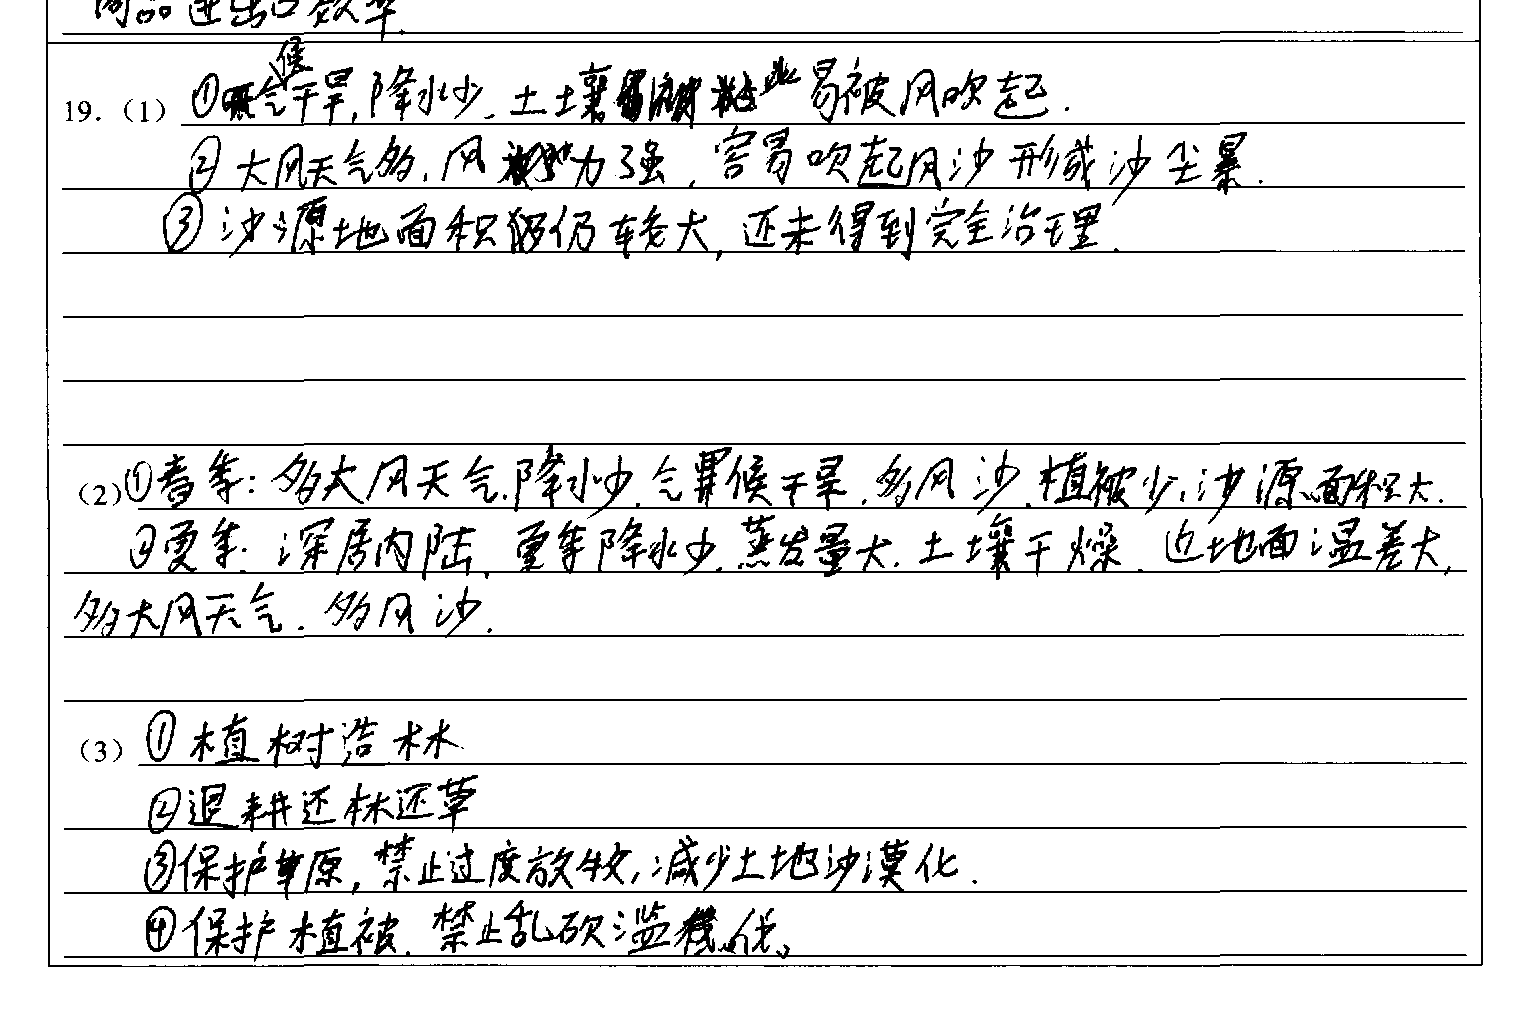 商品进出口效率.
19.（1）①气候干旱,降水少.土壤易被风吹起.
②大风天气多,风力强,容易吹起风沙形成沙尘暴.
③沙源地面积仍较大,还未得到完全治理.
（2）①春季:多大风天气,降水少,气候干旱,多风沙,植被少,沙源面积大.
②夏季:深居内陆,夏季降水少,蒸发量大.土壤干燥.近地面温差大,
多大风天气.多风沙.
（3）①植树造林
②退耕还林还草
③保护草原,禁止过度放牧,减少土地沙漠化.
④保护植被.禁止乱砍滥伐。